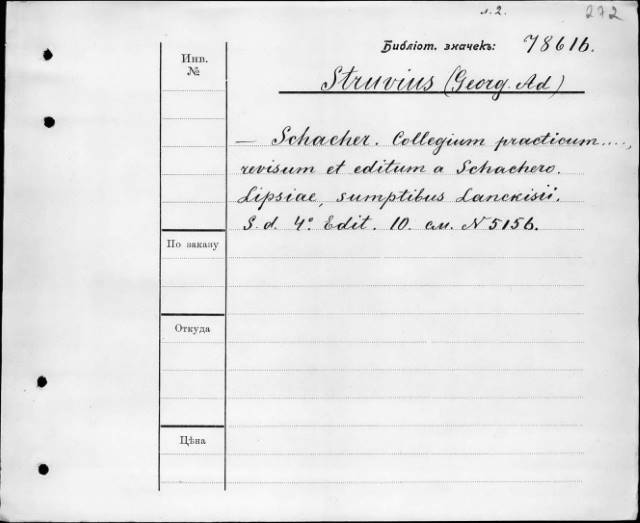 л. 2. 272
Библіот. значекъ: 7861b.
Инв.
№
Struvius (Georg. Ad)
— Schacher. Collegium practicum....,
revisum et editum a Schachero.
Lipsiae, sumptibus Lanckisii.
S. d. 4° Edit. 10. см. N 5156.
По заказу
Откуда
Цѣна